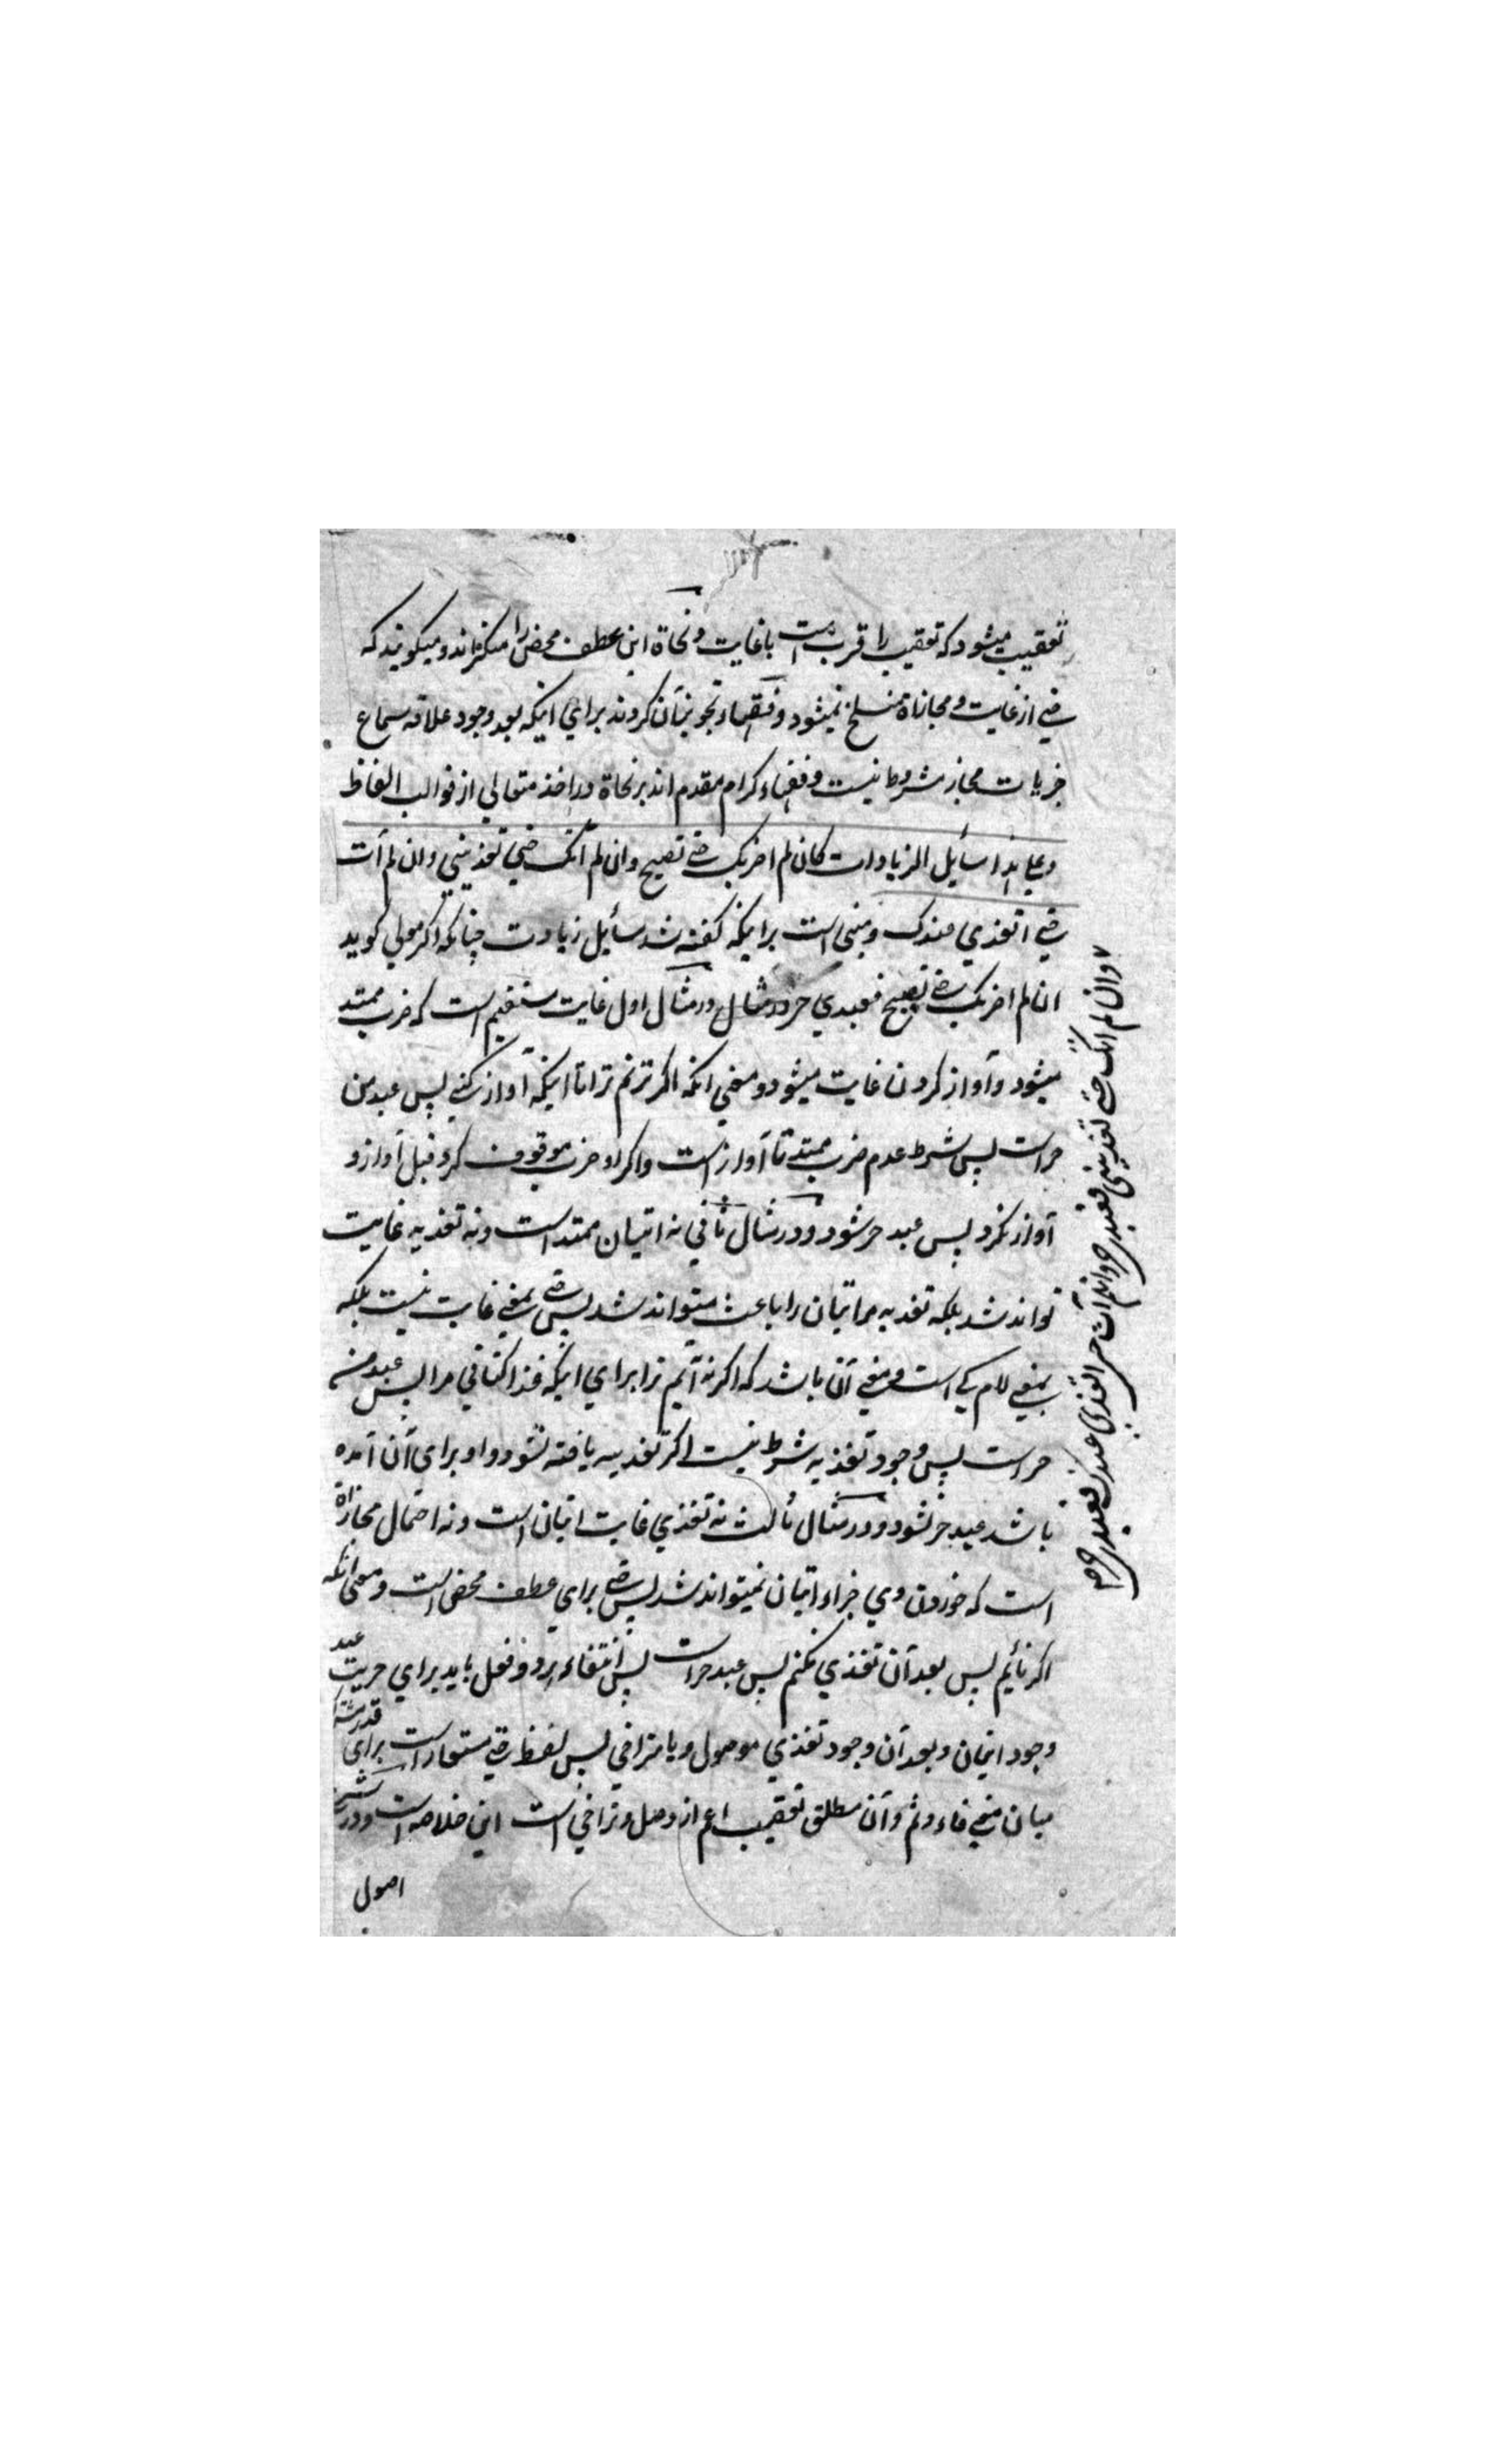 تعقیب میشود که تعقیب را قرب است با غایت و نحاة این عطف محض را منکر اند و میگویند که
حتی از غایت و مجازاة منسلخ نمیشود و فقهاء تجویز آن کردند برای اینکه بعد وجود علاقه سماع
جزییات مجاز مشروط نیست و فقهاء کرام مقدم اند بر نحاة در اخذ معانی از قوالب الفاظ
وعلی هذا مسائل الزیادات کان لم اضربک حتی تصیح وان لم آتک حتی تغدینی وان لم آت
حتی اتغدی عندک و مبنی است برینکه گفته شد مسائل زیادت چنانکه اگر مولی گوید
ان لم اضربک حتی تصیح فعبدی حر در مثال در مثال اول غایت مستقیم است که ضرب ممتد
میشود و آواز کردن غایت میشود و معنی آنکه اگر نزنم ترا تا اینکه آواز کنی پس عبد من
حر است پس شرط عدم ضرب ممتد تا آواز است و اگر او ضرب موقوف کرد قبل آواز و
آواز نکرد پس عبد حر شود و در مثال ثانی نه اتیان ممتد است و نه تغدیه غایت
تواند شد بلکه تغدیه مر اتیان را باعث میتواند شد پس حتی بمعنی غایت نیست بلکه
بمعنی لام کی است و معنی آن باشد که اگر نه آیم ترا برای اینکه غذا کنانی مرا پس عبد من
حر است پس وجود تغدیه شرط نیست اگر تغدیه یافته نشود و او برای آن آمده
باشد عبد حر نشود و در مثال ثالث نه تغدی غایت اتیان است و نه احتمال مجازاة
است که خوردن وی جزاء اتیان نمیتواند شد پس حتی برای عطف محض است و معنی آنکه
اگر نایم پس بعد آن تغدی نکنم پس عبد حر است پس انتفاء هر دو فعل باید برای حریت عبد
وجود اتیان و بعد آن وجود تغدی موصول و یا متراخی پس لفظ حتی مستعار است برای قدر مشترک
میان معنی فاء و ثم و آن مطلق تعقیب اعم از وصل و تراخی است این خلاصه است و در
اصول
وان لم آتک حتی تغدینی فعبدی حر وان لم آت حتی اتغدی عندک فعبدی حر